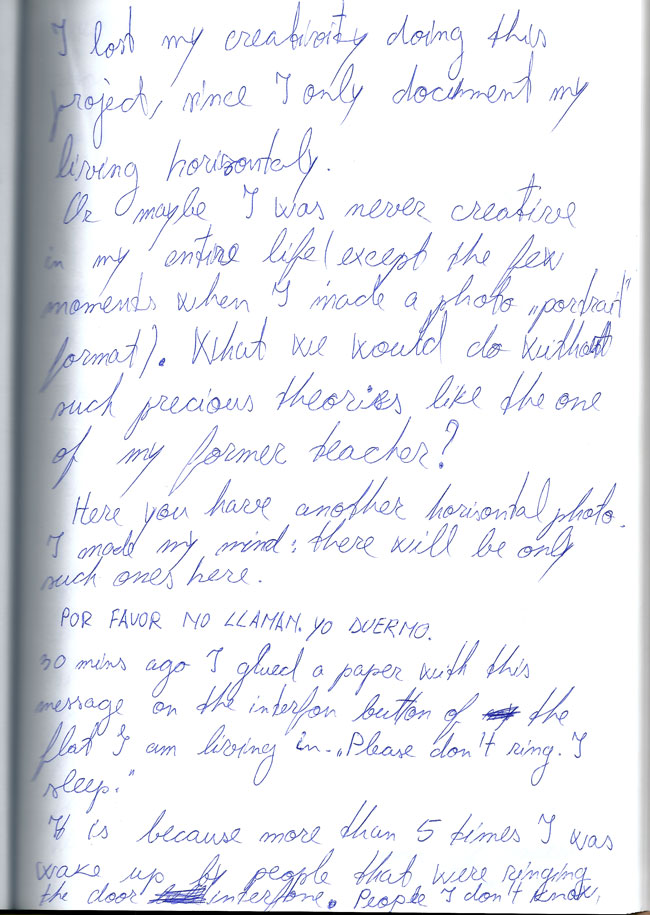 I lost my creativity doing this
project, since I only document my
living horizontaly.
Or maybe I was never creative
in my entire life (except the few
moments when I made a photo „portrait"
format). What we would do without
such precious theories like the one
of my former teacher?
Here you have another horisontal photo.
I made my mind: there will be only
such ones here.
POR FAVOR NO LLAMAN. YO DUERMO.
30 mins ago I glued a paper with this
message on the interfon button of the
flat I am living in. „Please don't ring. I
sleep."
It is because more than 5 times I was
wake up by people that were ringing
the door interfone. People I don't know,